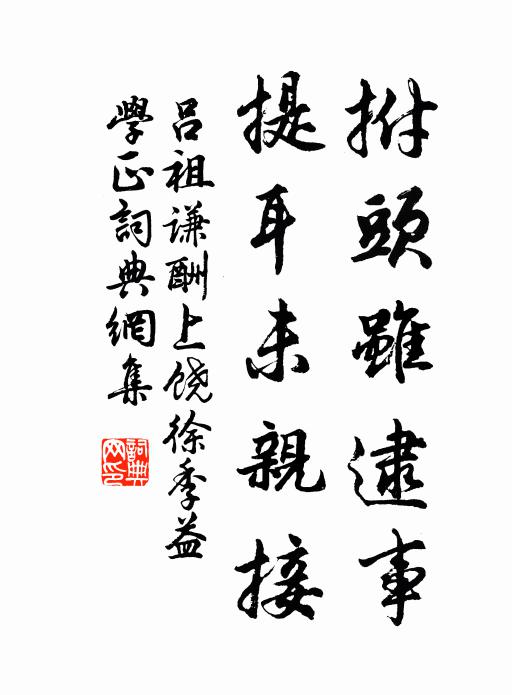 拊頭雖逮事
提耳未親接
吕祖谦酬上饶徐季益
學正詞典網集
詞典网印